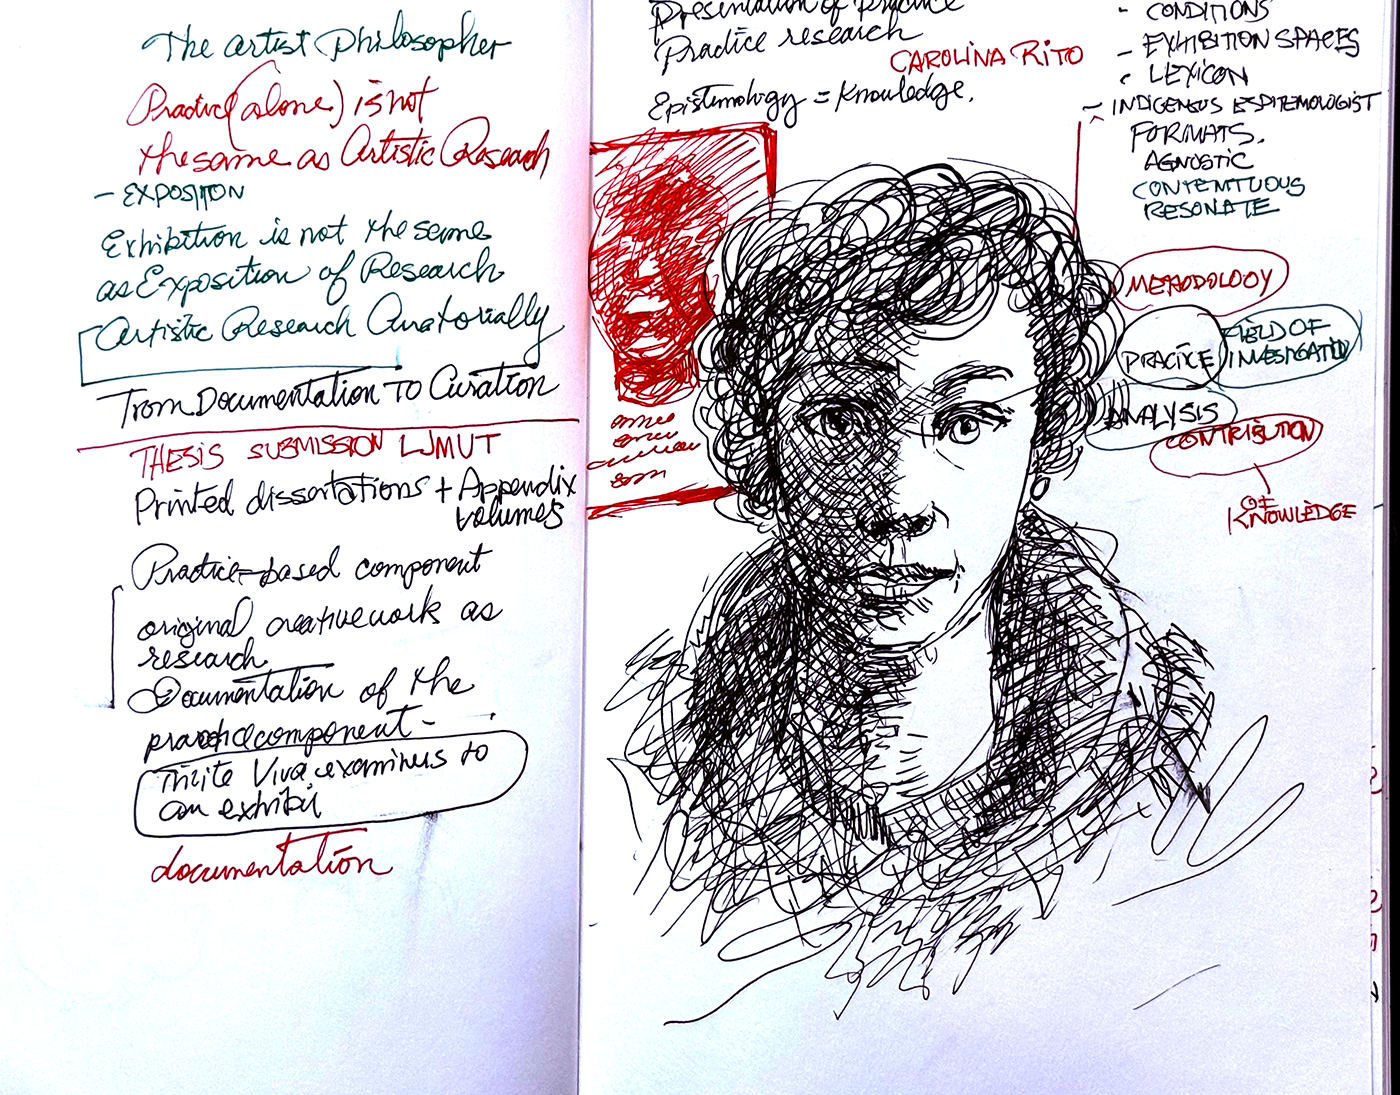 The artist Philosopher
Practice (alone) is not
the same as Artistic Research
- EXPOSITION
Exhibition is not the same
as Exposition of Research
Artistic Research Curatorially
From Documentation To Curation
THESIS SUBMISSION LJMUT
Printed dissertations + Appendix
volumes
Practice-based component
original creative work as
research
Documentation of the
practice component -
Invite Viva examiners to
an exhibit
documentation
Presentation of practice
Practice research
CAROLINA RITO
Epistemology = Knowledge.
- CONDITIONS
- EXHIBITION SPACES
LEXICON
- INDIGENSUS ESPITEMOLOGIST
FORMATS.
AGNOSTIC
CONTEMTUOUS
RESONATE
METHODOLOGY
PRACTICE
FIELD OF
INVESTIGATION
ANALYSIS
CONTRIBUTION
OF
KNOWLEDGE